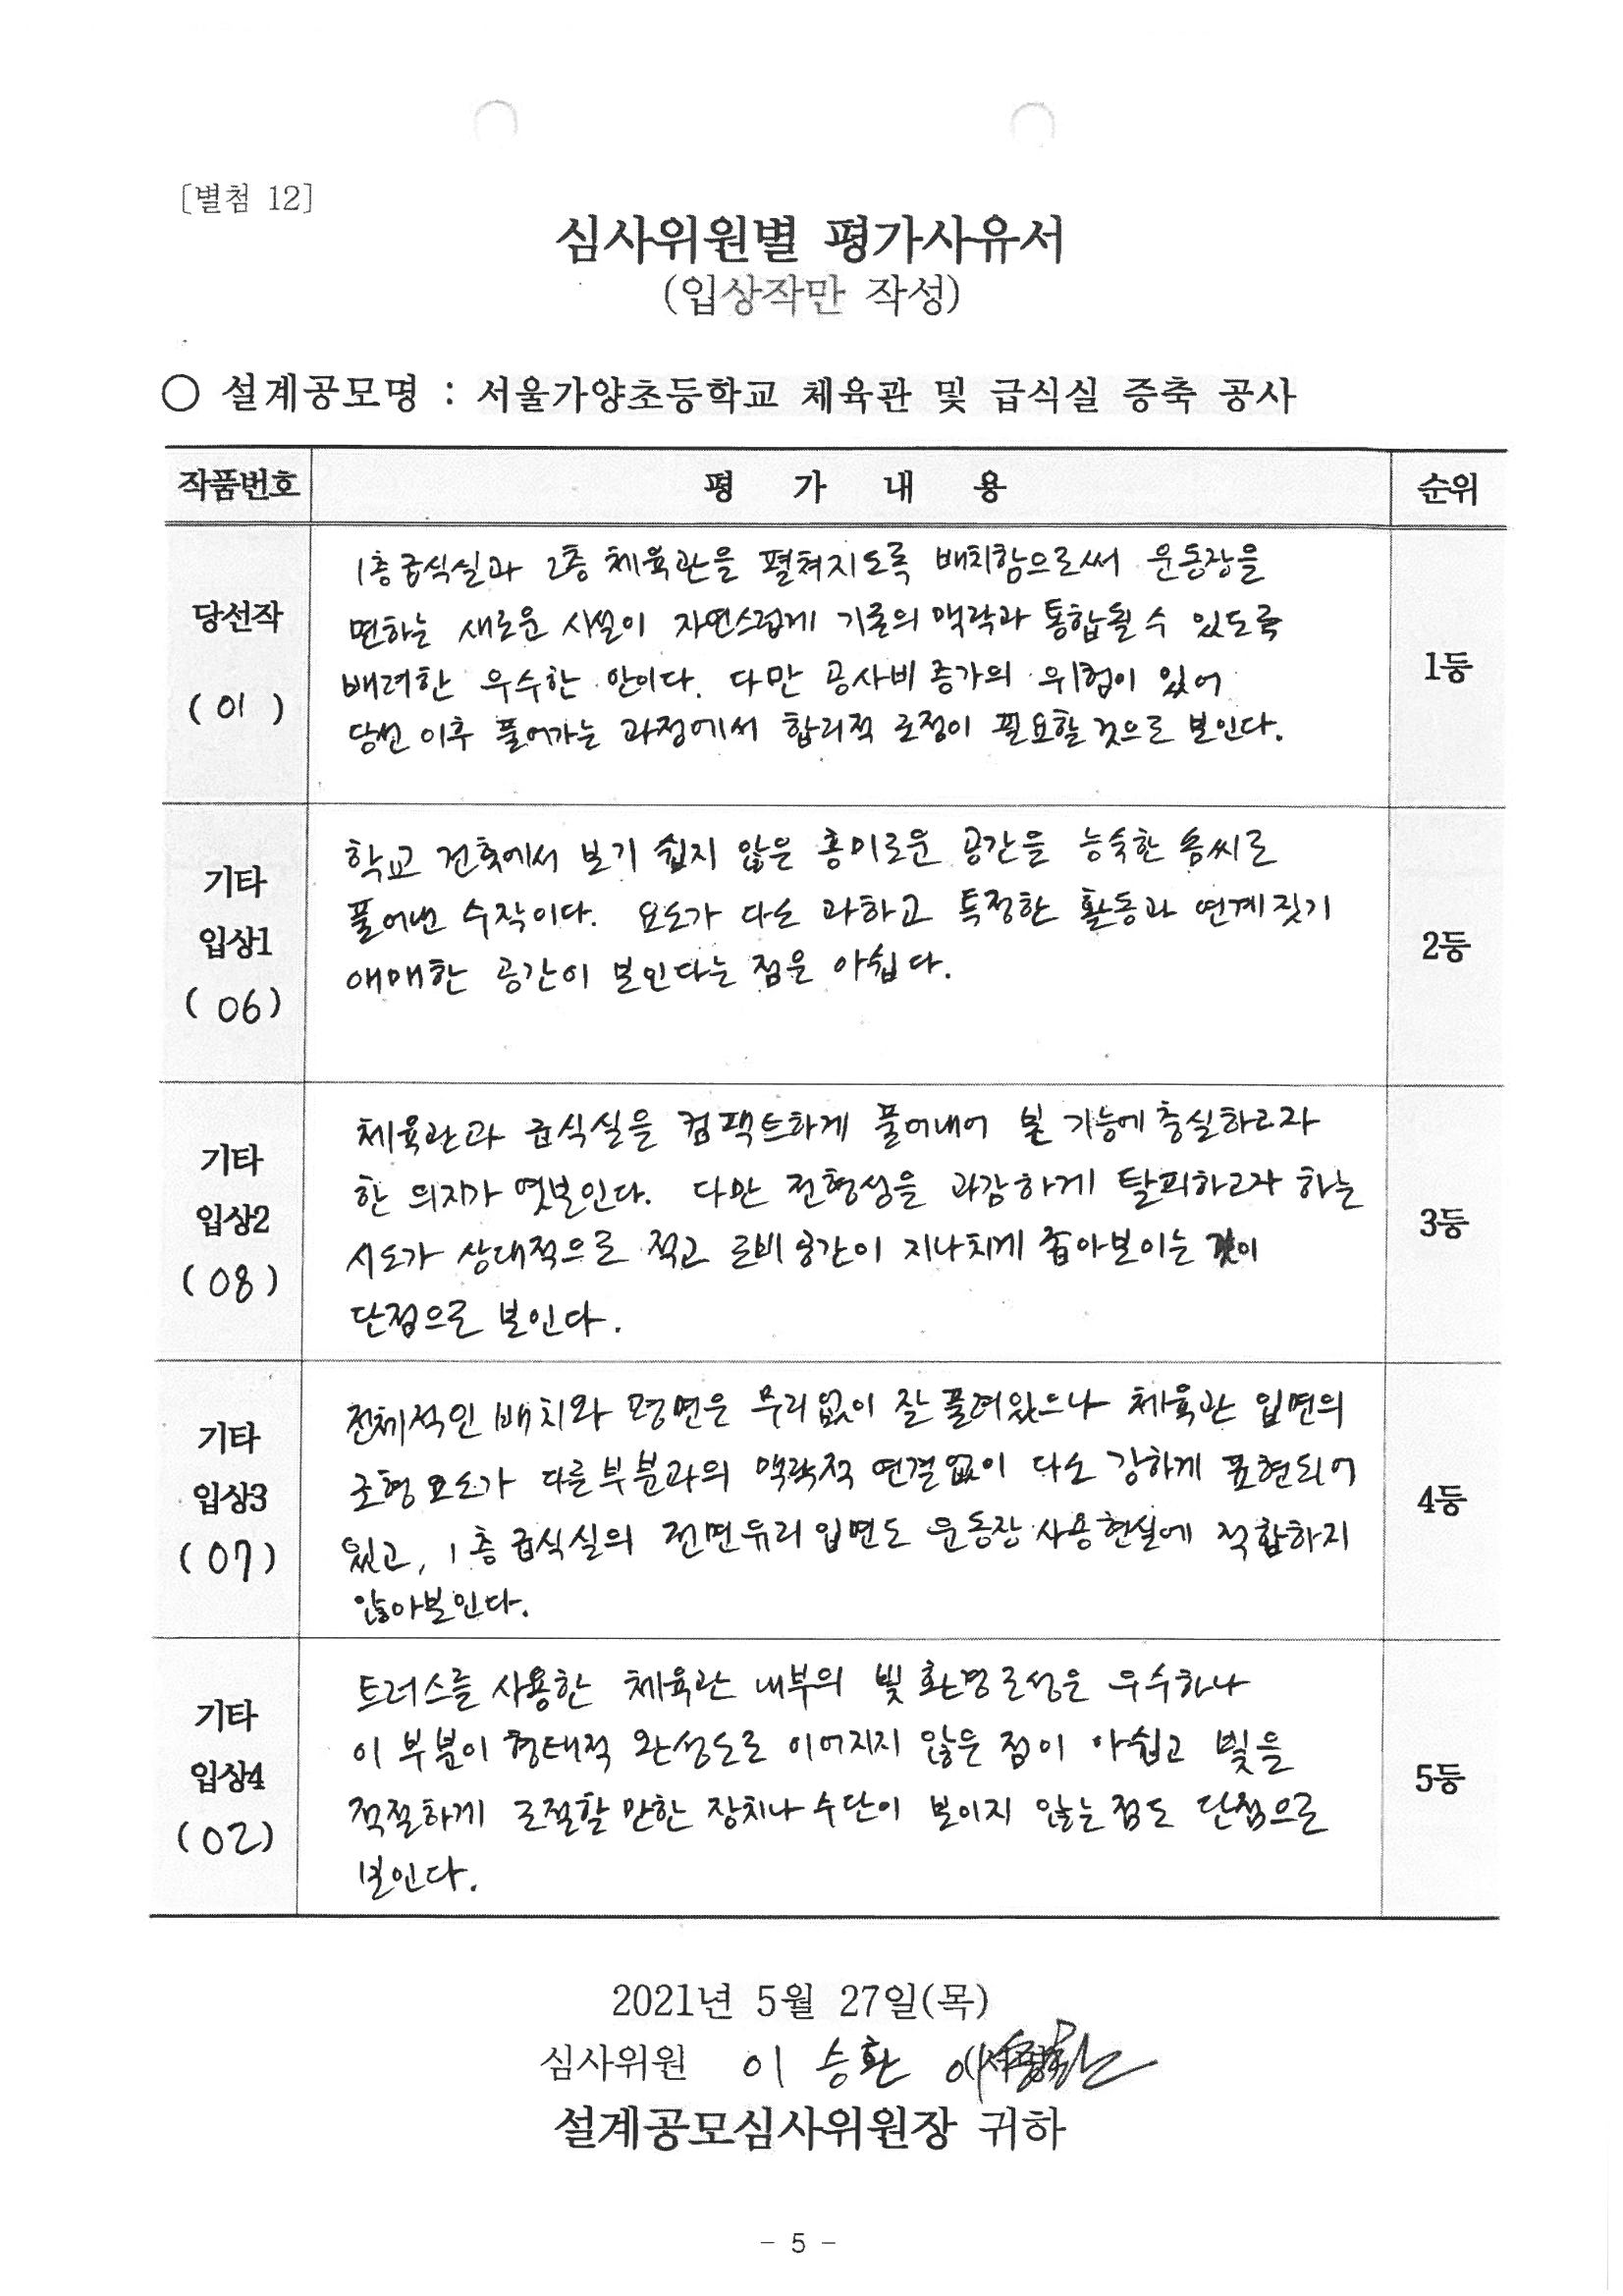 [별첨 12]
심사위원별 평가사유서
(입상작만 작성)
○ 설계공모명 : 서울가양초등학교 체육관 및 급식실 증축 공사
작품번호 평 가 내 용 순위
당선작
( 01 )
1층 급식실과 2층 체육관을 펼쳐지도록 배치함으로써 운동장을
면하는 새로운 시설이 자연스럽게 기존의 맥락과 통합될 수 있도록
배려한 우수한 안이다. 다만 공사비 증가의 위험이 있어
당선 이후 풀어가는 과정에서 합리적 조정이 필요할 것으로 보인다.
1등
기타
입상1
( 06 )
학교 건축에서 보기 쉽지 않은 흥미로운 공간을 능숙한 솜씨로
풀어낸 수작이다. 요소가 다소 과하고 특정한 활동과 연계짓기
애매한 공간이 보인다는 점은 아쉽다.
2등
기타
입상2
( 08 )
체육관과 급식실을 컴팩트하게 풀어내어 본 기능에 충실하고자
한 의지가 엿보인다. 다만 전형성을 과감하게 탈피하고자 하는
시도가 상대적으로 적고 로비 공간이 지나치게 좁아보이는 것이
단점으로 보인다.
3등
기타
입상3
( 07 )
전체적인 배치와 평면은 무리없이 잘 풀려있으나 체육관 입면의
조형요소가 다른 부분과의 맥락적 연결없이 다소 강하게 표현되어
있고, 1층 급식실의 전면유리 입면도 운동장 사용현실에 적합하지
않아보인다.
4등
기타
입상4
( 02 )
트러스를 사용한 체육관 내부의 빛 환경 조성은 우수하나
이 부분이 형태적 완성도로 이어지지 않은 점이 아쉽고 빛을
적절하게 조절할 만한 장치나 수단이 보이지 않는 점도 단점으로
보인다.
5등
2021년 5월 27일(목)
심사위원 이 승환
설계공모심사위원장 귀하
- 5 -